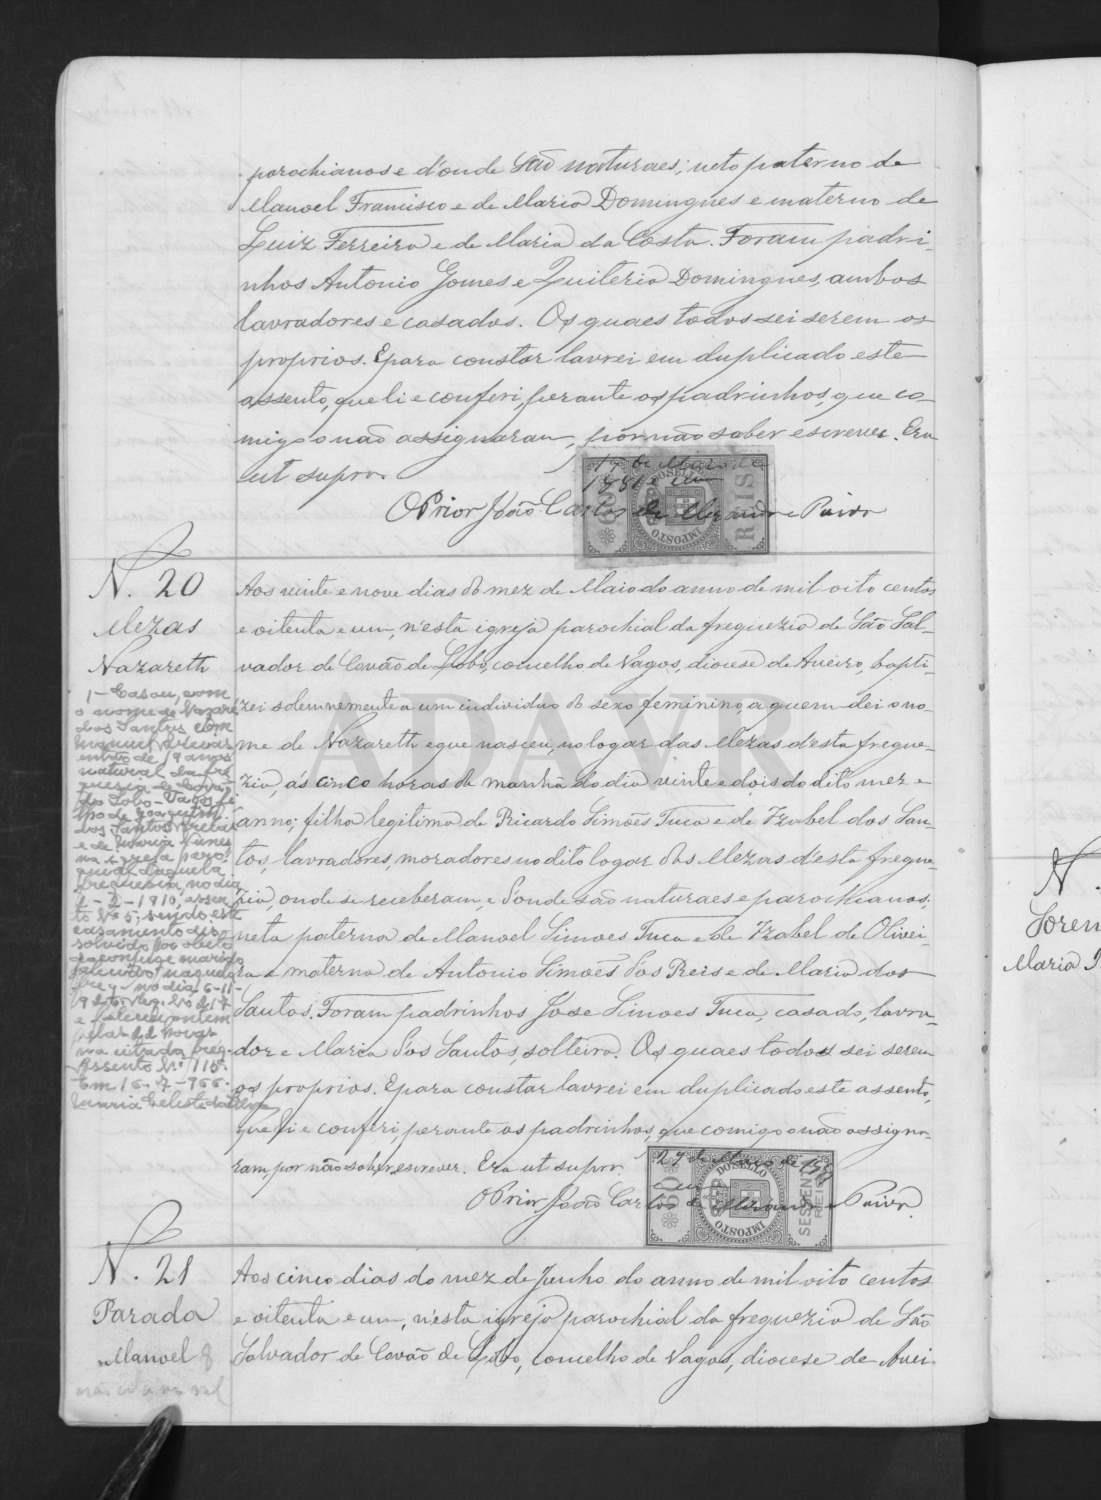 parochianos e d'onde são naturaes; neto paterno de
Manoel Francisco e de Maria Domingues e materno de
Luiz Ferreira e de Maria da Costa. Foram padri-
nhos Antonio Gomes e Quiteria Domingues, ambos
lavradores e casados. Os quaes todos sei serem os
proprios. E para constar lavrei em duplicado este
assento, que li e conferi, perante os padrinhos, que co-
migo o não assignaram, por não saber escrever. Era
ut supra.
O Prior João Carlos de e Paiva
60 DO SELLO IMPOSTO REIS
N. 20
Mezas
Nazareth
Aos vinte e nove dias do mez de Maio do anno de mil oito centos
e oitenta e um, n'esta igreja parochial da freguezia de São Sal-
vador de Covão de Lobo, concelho de Vagos, diocese de Aveiro, bapti-
zei solemnemente a um individuo do sexo feminino, a quem dei o no-
me de Nazareth e que nasceu, no logar das Mezas d'esta fregue-
zia, ás cinco horas da manhã do dia vinte e dois do dito mez e
anno; filha legitima de Ricardo Simões Tuca e de Izabel dos San-
tos, lavradores, moradores no dito logar das Mezas d'esta fregue-
zia, onde se receberam, e d'onde são naturaes e parochianos;
neta paterna de Manoel Simoes Tuca e de Izabel de Olivei-
ra e materna de Antonio Simões dos Reis e de Maria dos
Santos. Foram padrinhos José Simoes Tuca, casado, lavra-
dor e Maria dos Santos, solteira. Os quaes todos sei serem
os proprios. E para constar lavrei em duplicado este assento,
que li e conferi, perante os padrinhos, que comigo o não assigna-
ram, por não saber escrever. Era ut supra.
O Prior João Carlos de e Paiva
60 DO SELLO IMPOSTO SESSENTA REIS
1- Casou, com
o nome de Nazaré
dos Santos com
Manuel
de 19 anos
natural da fre
guesia de Covão
do Lobo - Vagos, fi
lho de Joaquim
dos Santos
e de Maria Nunes
na igreja paro
quial daquela
freguesia, no dia
2-2-1910, assen
to Nº 5; sendo este
casamento dis
solvido por obito
do conjuge marido
falecido naquela
freg. no dia 6-11-
e faleceu
de Novas
na citada freg.
Assento Nº 110.
Em 16-7-966.
N. 21
Parada
Manoel
Aos cinco dias do mez de Junho do anno de mil oito centos
e oitenta e um, n'esta igreja parochial da freguezia de São
Salvador de Covão de Lobo, concelho de Vagos, diocese de Avei-
N.
Maria
ADAVR